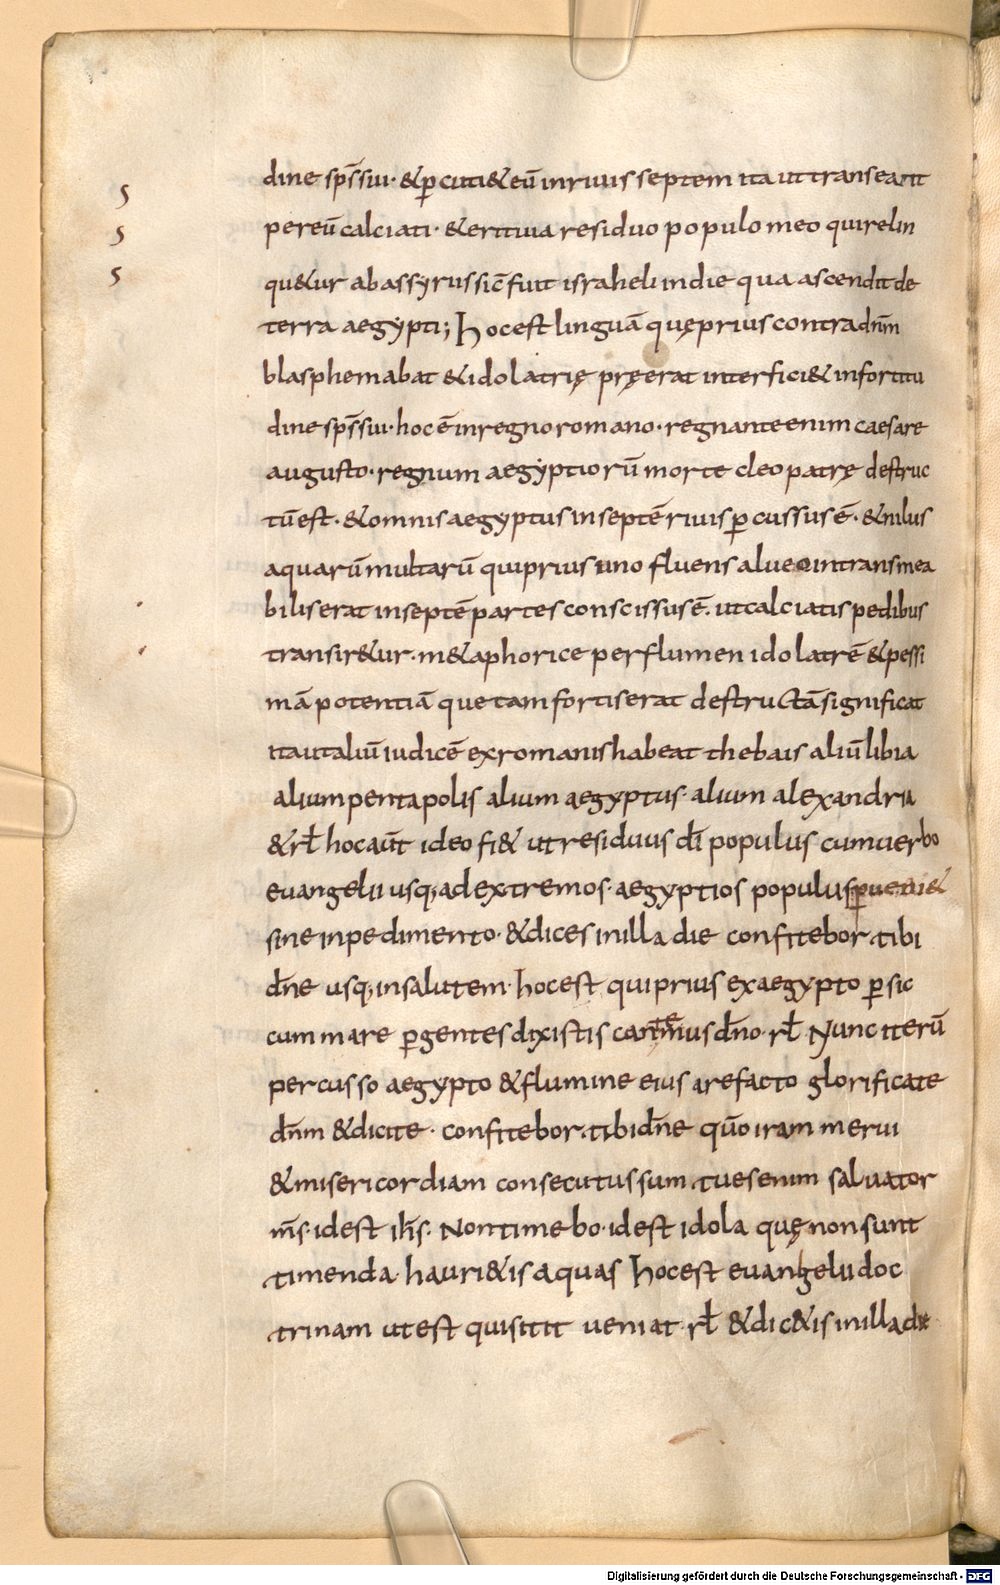 dine sp̄s sui· & ꝑcuti& eū in riuis septem ita ut transeant
per eū calciati· & erit uia residuo populo meo qui relin
qu&ur ab assyriis sic̄ fuit israheli in die qua ascendit de
terra aegypti; Hoc est linguā quę prius contra dn̄m
blasphemabat & idolatrię pręerat interfici& in fortitu
dine sp̄s sui· hoc ē in regno romano· regnante enim caesare
augusto· regnum aegyptiorū morte cleopatrę destruc
tū est· & omnis aegyptus in septē riuis ꝑcussus ē· & nilus
aquarū multarū qui prius uno fluens alueo intransmea
bilis erat in septē partes conscissus ē. ut calciatis pedibus
transir&ur· m&aphorice per flumen idolatrē & pessi
mā potentiā que tam fortis erat destructā significat
ita ut aliū iudicē ex romanis habeat thebais aliū libia
alium pentapolis alium aegyptus· alium alexandria
& rł hoc aūt ideo fi& ut residuus dī populus cum uerbo
euangelii usq; ad extremos· aegyptios populus ꝑueni&
sine inpedimento· & dices in illa die confitebor tibi
dn̄e usq; in salutem· hoc est qui prius ex aegypto ꝑ sic
cum mare ꝑgentes dixistis cantemus dn̄o· rł Nunc iterū
percusso aegypto & flumine eius arefacto glorificate
dn̄m & dicite· confitebor tibi dn̄e qūo iram merui
& misericordiam consecutus sum tu es enim saluator
m̄s· id est ih̄s· Non timebo· id est idola quę non sunt
timenda hauri&is aquas Hoc est euangelii doc
trinam ut est qui sitit ueniat rł & dic&is in illa die
s
s
s
Digitalisierung gefördert durch die Deutsche Forschungsgemeinschaft - DFG